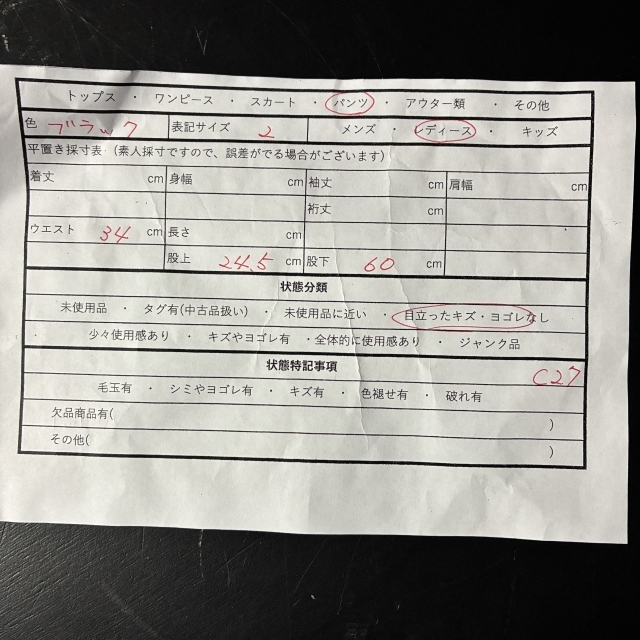 トップス ・ ワンピース ・ スカート ・ パンツ ・ アウター類 ・ その他
色 ブラック 表記サイズ 2 メンズ ・ レディース ・ キッズ
平置き採寸表 (素人採寸ですので、誤差がでる場合がございます)
着丈 cm 身幅 cm 袖丈 cm 肩幅 cm
裄丈 cm
ウエスト 34 cm 長さ cm
股上 24.5 cm 股下 60 cm
状態分類
未使用品 ・ タグ有(中古品扱い) ・ 未使用品に近い ・ 目立ったキズ・ヨゴレなし
・ 少々使用感あり ・ キズやヨゴレ有 ・全体的に使用感あり ・ ジャンク品
状態特記事項
C27
毛玉有 ・ シミやヨゴレ有 ・ キズ有 ・ 色褪せ有 ・ 破れ有
欠品商品有( )
その他( )